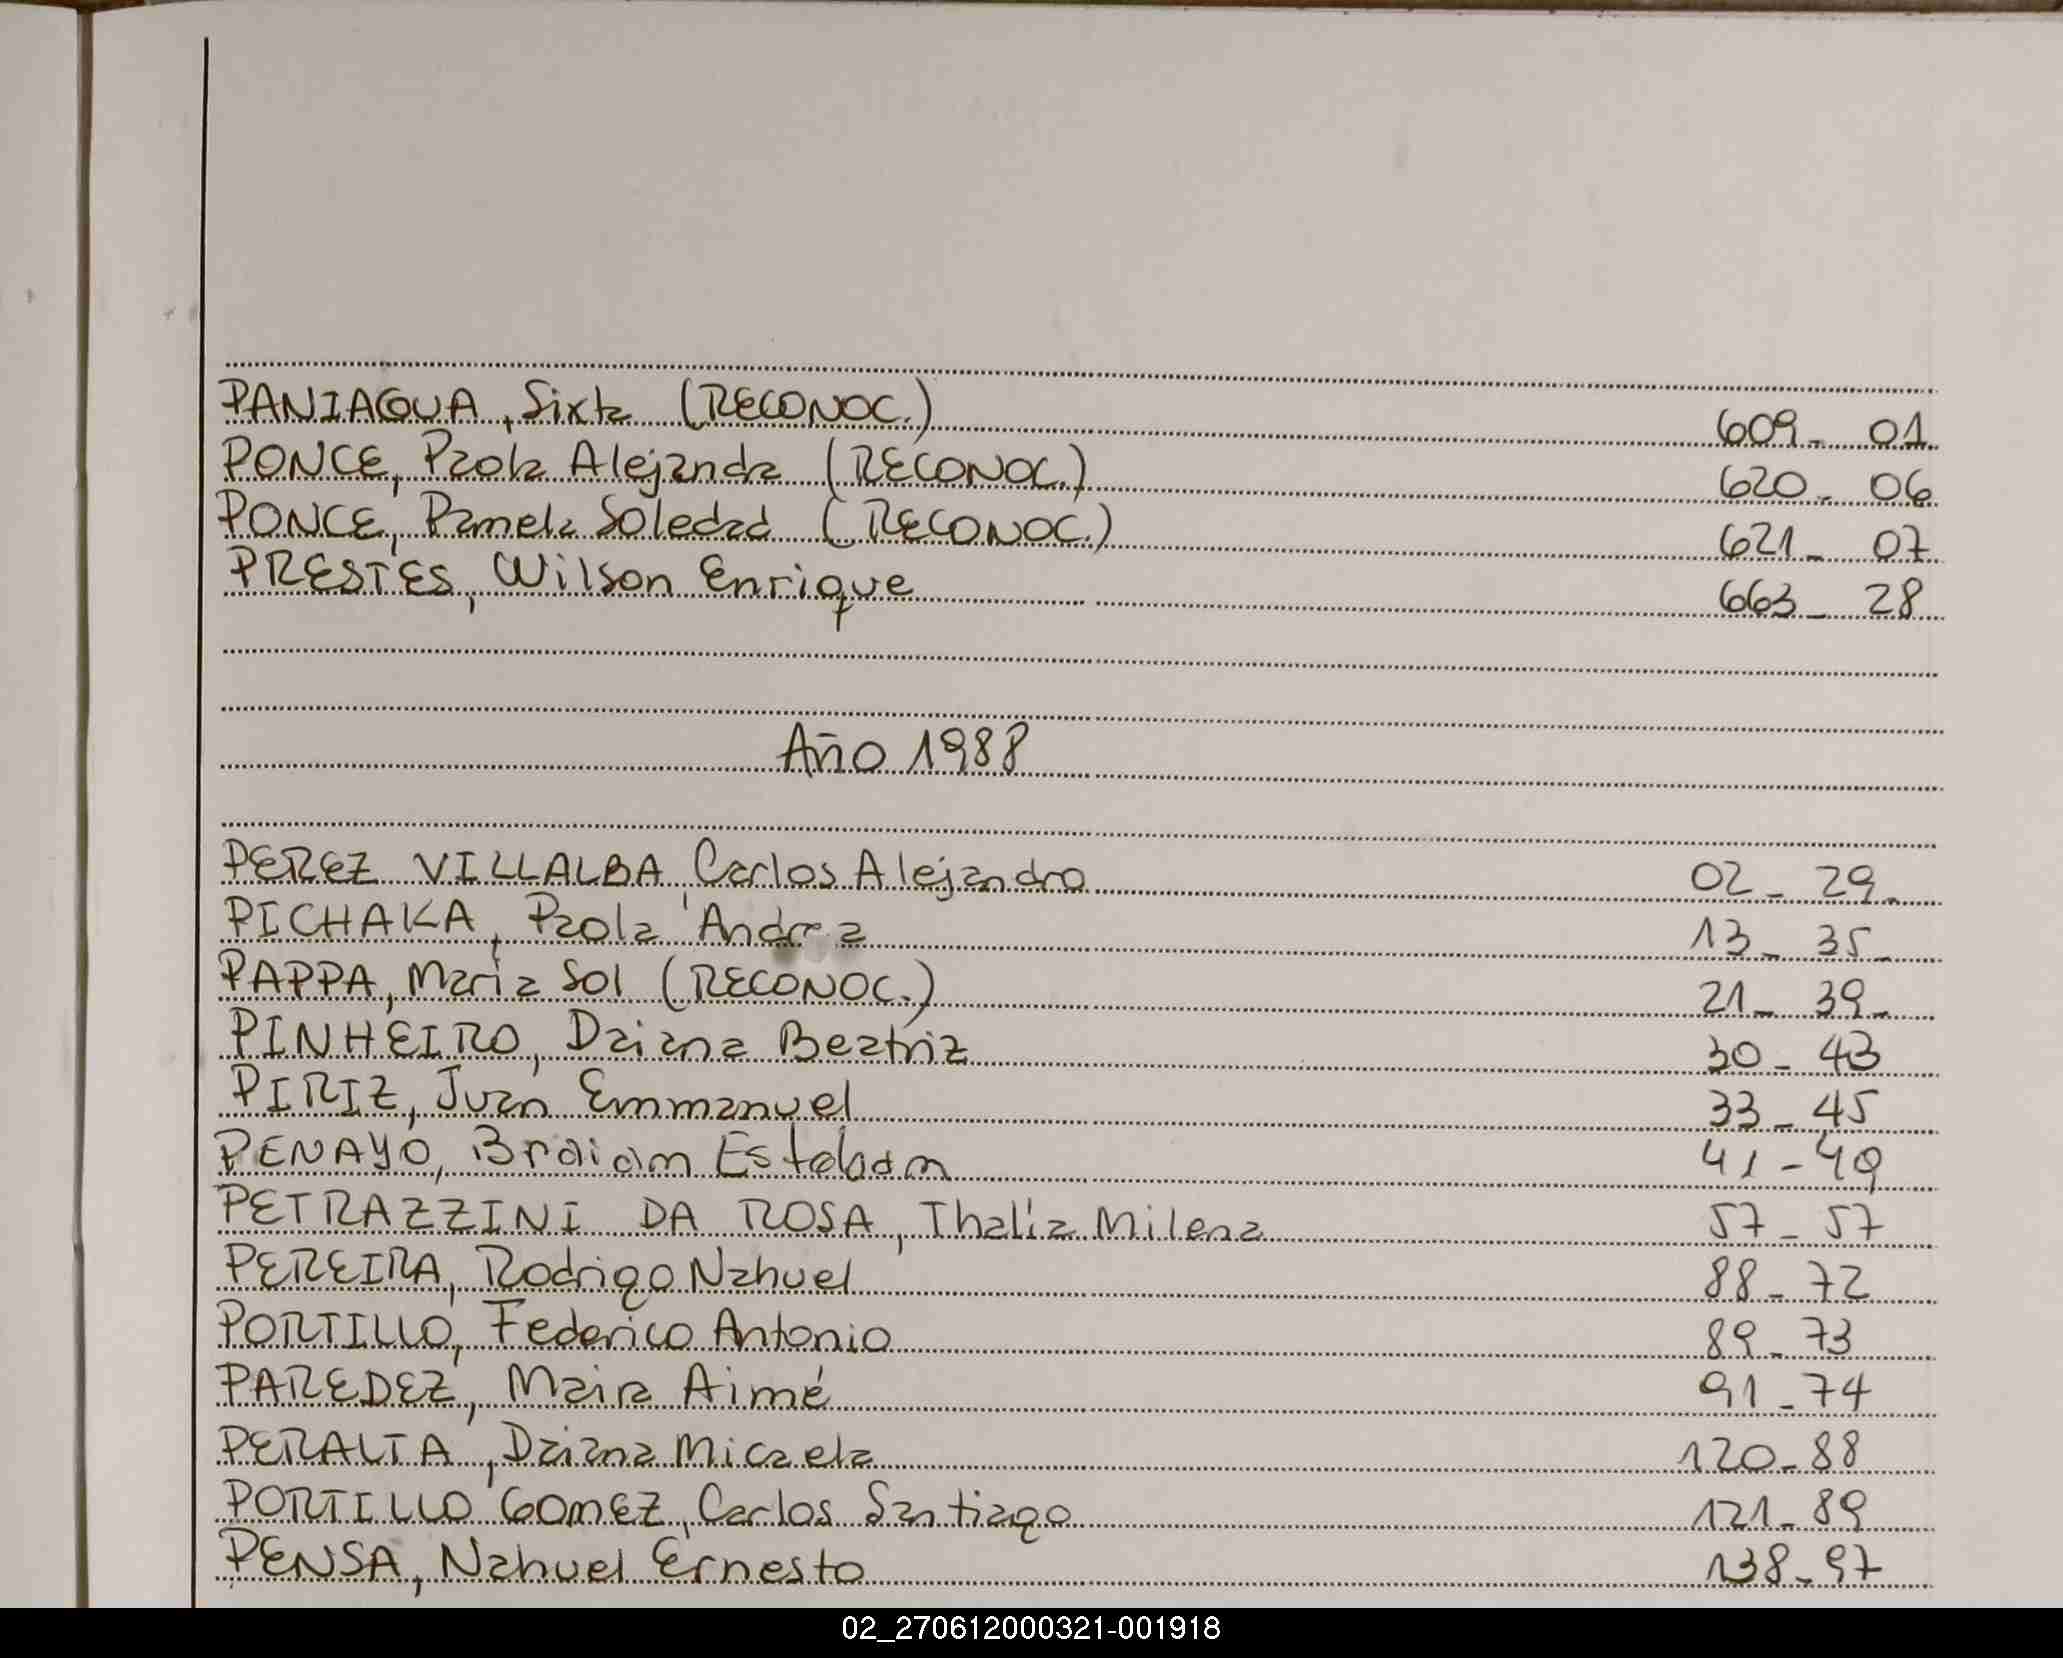 PANIAGUA, Sixta (RECONOC.) 609- 01
PONCE, Paola Alejanda (RECONOC.) 620- 06
PONCE, Pamela Soledad (RECONOC.) 621- 07
PRESTES, Wilson Enrique 663- 28
Año 1988
PEREZ VILLALBA, Carlos Alejandro 02- 29-
PICHAKA, Paola Andrea 13- 35-
PAPPA, Maria Sol (RECONOC.) 21- 39-
PINHEIRO, Daiana Beatriz 30- 43
PIRIZ, Juan Emmanuel 33- 45
PENAYO, Braiam Esteban 41-49
PETRAZZINI DA ROSA, Thalía Milena 57- 57
PEREIRA, Rodrigo Nahuel 88-72
PORTILLO, Federico Antonio 89-73
PAREDEZ, Maira Aimé 91-74
PERALTA, Daiana Micaela 120-88
PORTILLO GOMEZ, Carlos Santiago 121-89
PENSA, Nahuel Ernesto 138-97
02_270612000321-001918